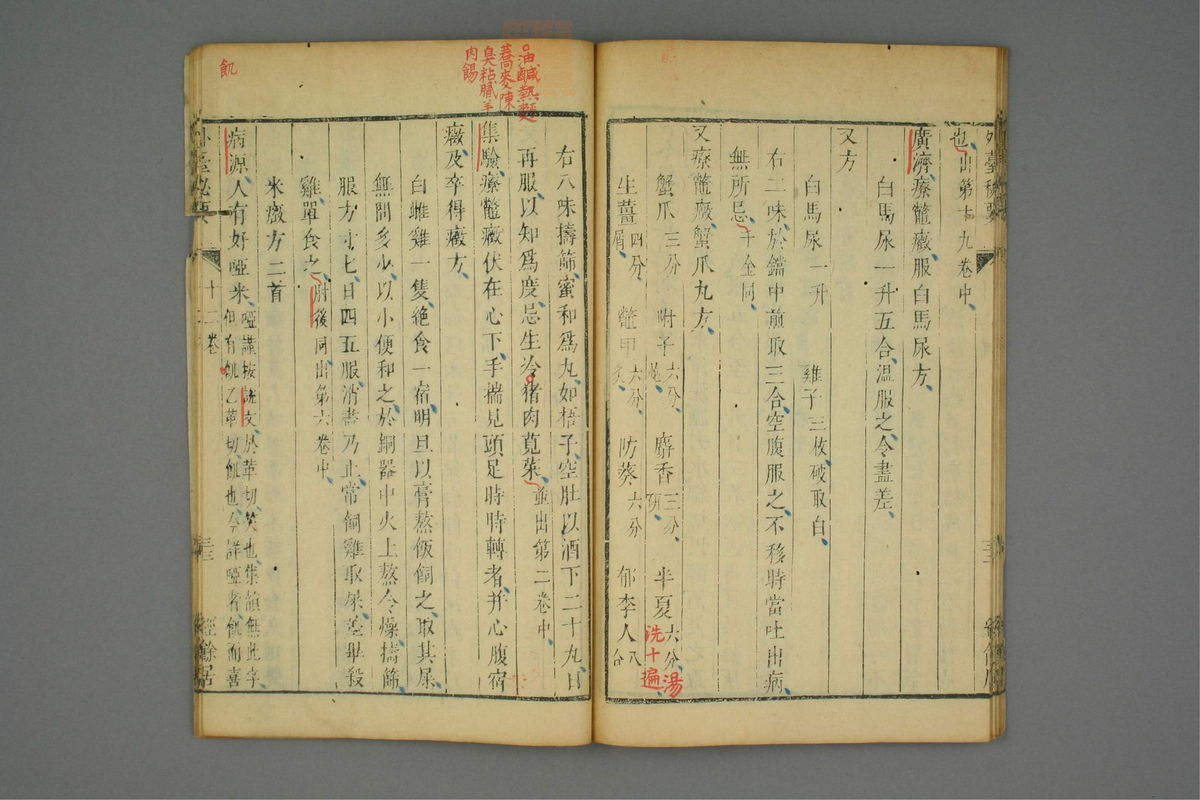 外臺秘要
也出第十九卷中
廣濟療鼈癥服白馬尿方
白馬尿一升五合溫服之令盡差
又方
白馬尿一升 雞子三枚破取白
右二味於鐺中煎取三合空腹服之不移時當吐出病
無所忌千金同
又療鼈癥蟹爪丸方
蟹爪三分 附子六分炮 麝香三分研 半夏六分湯洗十遍
生薑四分屑 鼈甲六分炙 防葵六分 郁李人八合
油鹹熱麵
蕎麥陳
臭粘膩羊
肉餳
右八味擣篩蜜和爲丸如梧子空肚以酒下二十丸日
再服以知爲度忌生冷豬肉莧菜並出第二卷中
集驗療鼈癥伏在心下手揣見頭足時時轉者并心腹宿
癥及卒得癥方
白雌雞一隻絕食一宿明旦以膏熬飯飼之取其屎
無問多少以小便和之於銅器中火上熬令燥擣篩
服方寸匕日四五服消盡乃止常飼雞取屎差畢殺
雞單食之肘後同出第六卷中
米癥方二首
飢
病源人有好啞米啞謹按說文於革切笑也集韻無此字
但有飢乙革切飢也今詳啞者飢而喜
外臺秘要
十二卷
三三
經餘居